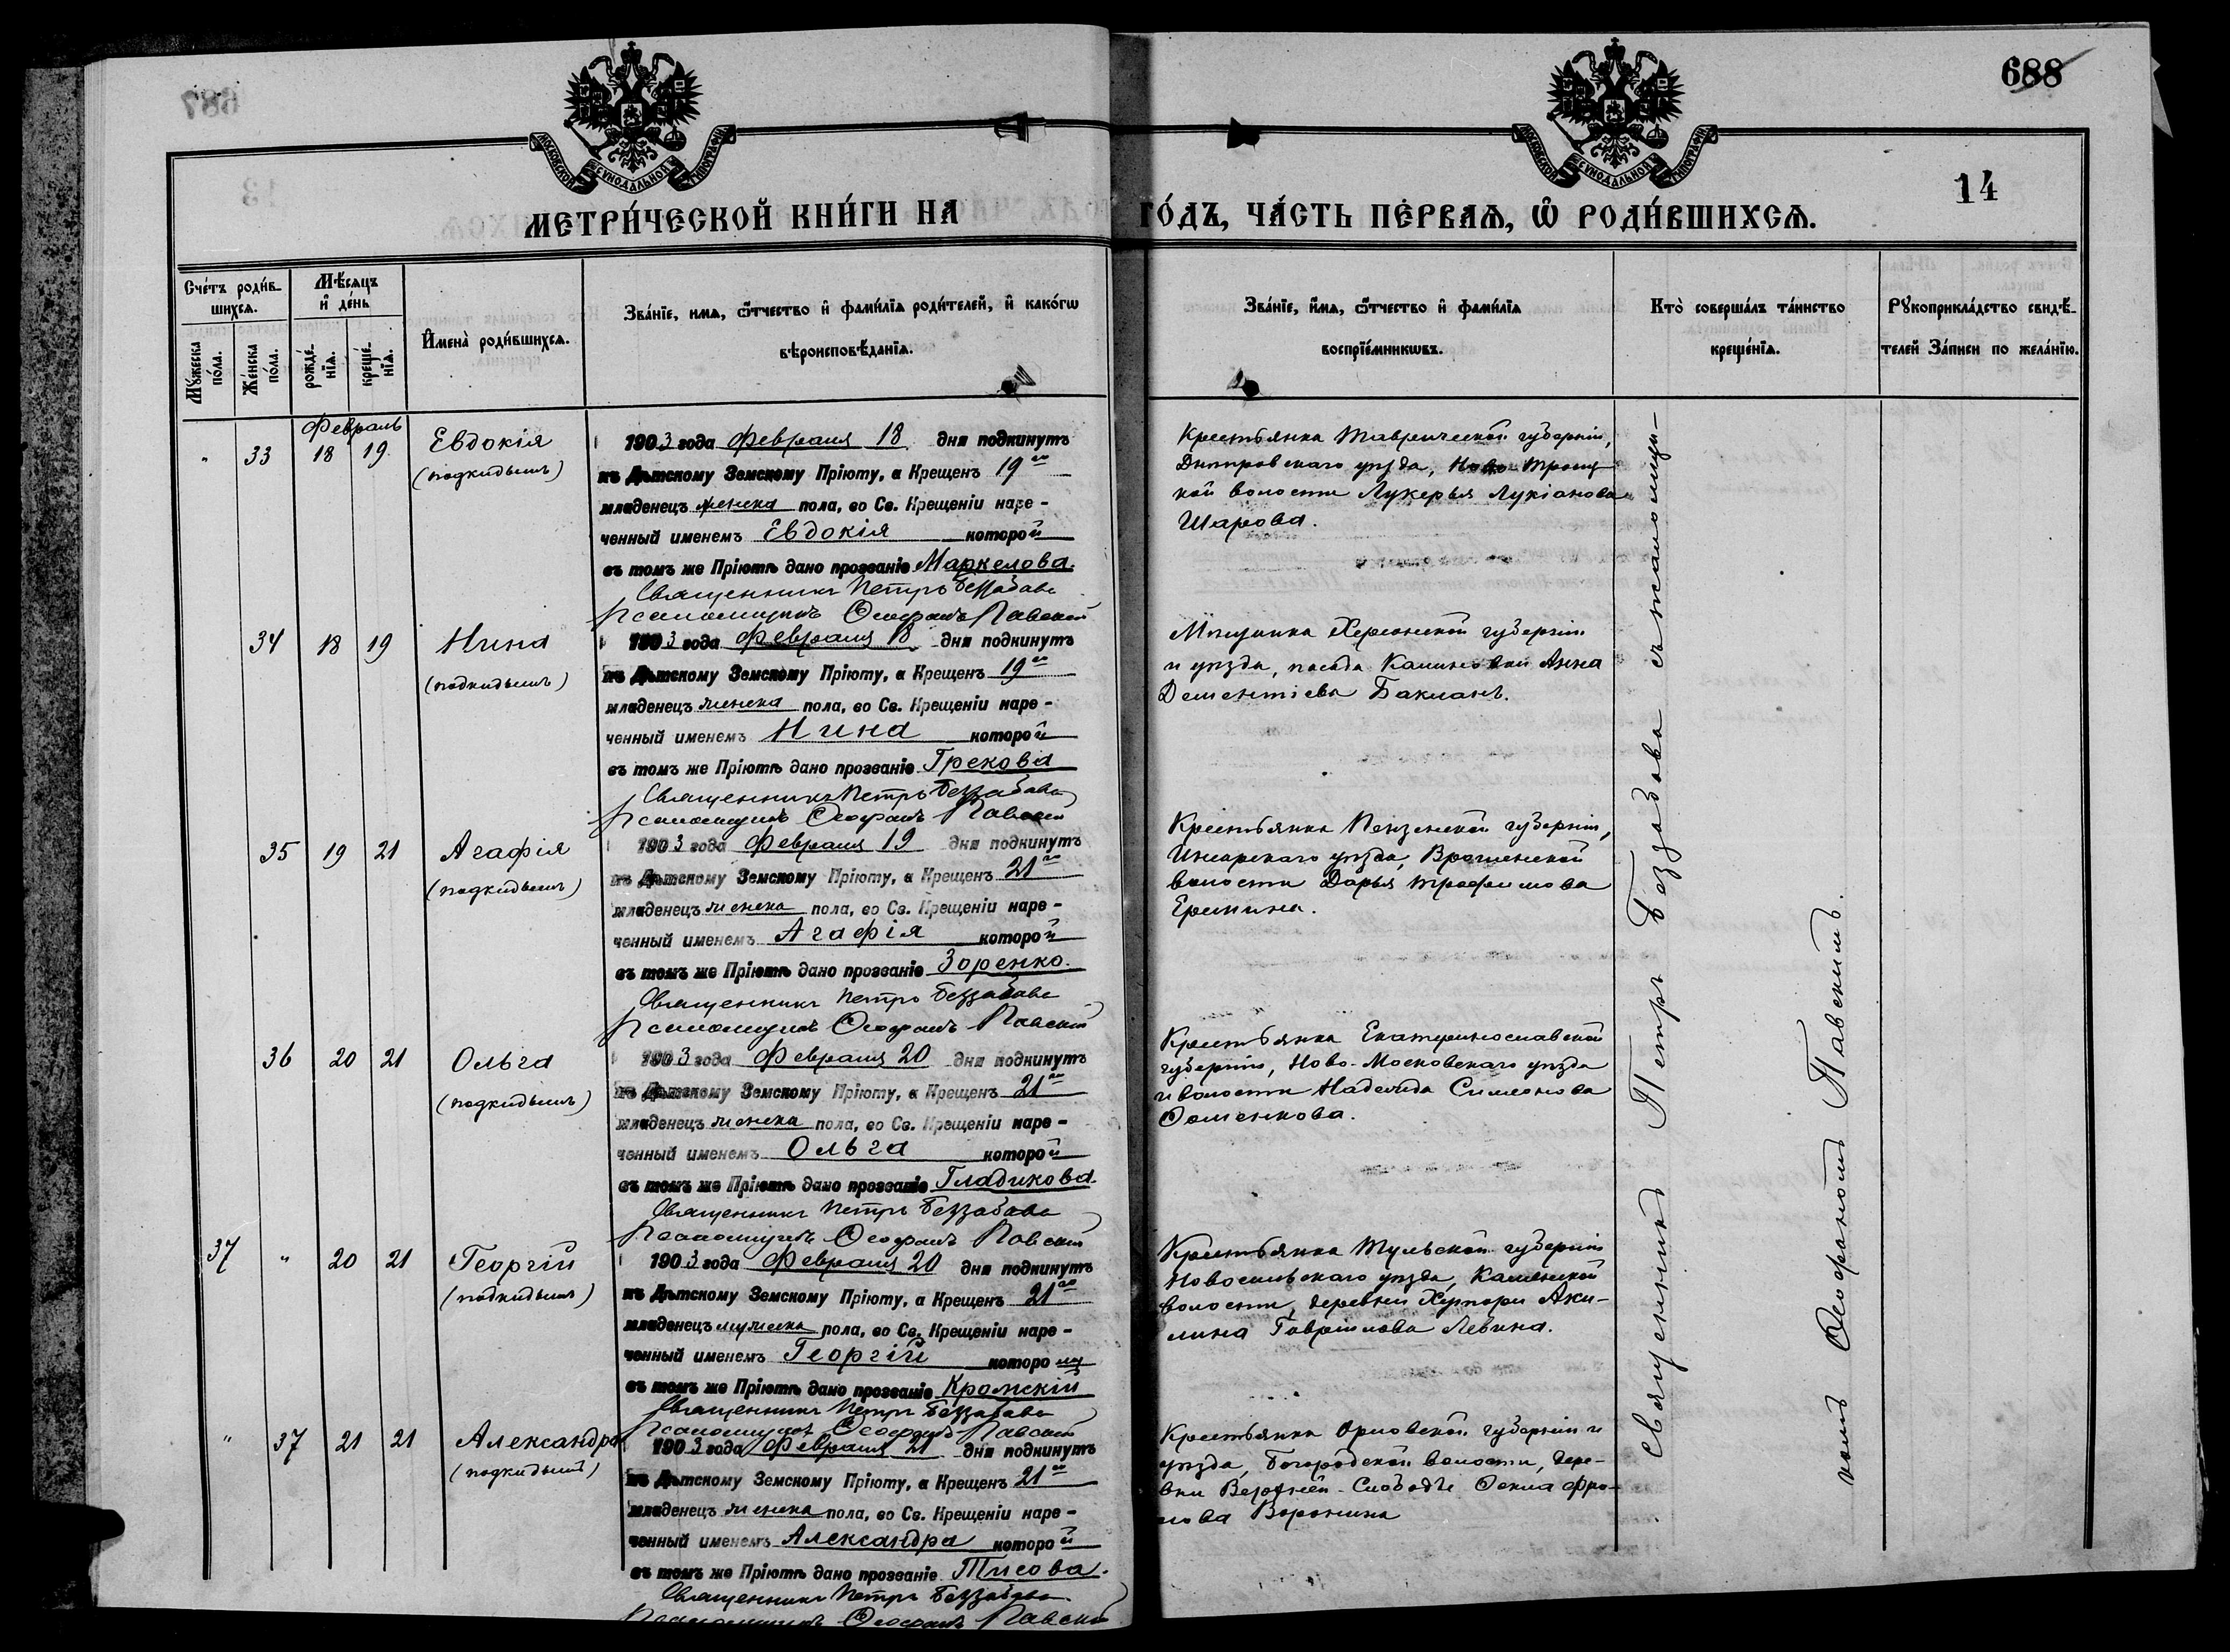 688
14
МОСКОВСКОЙ СѴНОДАЛЬНОЙ ТИПОГРАФІИ
МОСКОВСКОЙ СѴНОДАЛЬНОЙ ТИПОГРАФІИ
МЕТРИ́ЧЕСКОЙ КНИ́ГИ НА
ГО́ДЪ, ЧА́СТЬ ПЕ́РВАѦ, Ѽ РОДИ́ВШИХСѦ.
Сче́тъ роди́в-
шихсѧ.
Мꙋ́жеска по́ла.
Же́нска по́ла.
Мѣ́сѧцъ и҆ де́нь
рожде́-нїѧ.
креще́-нїѧ.
И҆мена̀ роди́вшихсѧ.
Зва́нїе, имѧ, ѻ҆́тчество и҆ фами́лїѧ роди́телей, и҆ како́гѡ
вѣроисповѣ́данїѧ.
Зва́нїе, и҆́мѧ, ѻ҆́тчество и҆ фами́лїѧ
воспрїе́мникѡвъ.
Кто̀ соверша́лъ та́инство
креще́нїѧ.
Рꙋкоприкла́дство свидѣ́-
телей за́писи по жела́нїю.
Февраль
" 33 18 19 Евдокія
(подкидышъ)
1903 года Февраля 18 дня подкинутъ
въ Дѣтскому Земскому Пріюту, а Крещенъ 19го
младенецъ женска пола, во Св. Крещеніи наре-
ченный именемъ Евдокія которой
въ томъ же Пріютѣ дано прозваніе Маркелова.
Священникъ Петръ Беззабава
Псаломщикъ Ѳеофанъ Павскій
Крестьянка Таврической губерніи,
Днѣпровскаго уѣзда, Ново-Троиц-
кой волости Лукерья Лукіанова
Шарова.
34 18 19 Нина
(подкидышъ)
1903 года Февраля 18 дня подкинутъ
къ Дѣтскому Земскому Пріюту, а Крещенъ 19го
младенецъ женска пола, во Св. Крещеніи наре-
ченный именемъ Нина которой
въ томъ же Пріютѣ дано прозваніе Грекова
Священникъ Петръ Беззабава
Псаломщикъ Ѳеофанъ Павскій
Мѣщанка Херсонской губерніи
и уѣзда, посада Калиновки Анна
Дементіева Бакланъ.
35 19 21 Агафія
(подкидышъ)
1903 года Февраля 19 дня подкинутъ
къ Дѣтскому Земскому Пріюту, а Крещенъ 21го
младенецъ женска пола, во Св. Крещеніи наре-
ченный именемъ Агафія которой
въ томъ же Пріютѣ дано прозваніе Зоренко.
Священникъ Петръ Беззабава
Псаломщикъ Ѳеофанъ Павскій
Крестьянка Пензенской губерніи,
Инсарскаго уѣзда,
волости Дарья Трофимова
Еремина.
36 20 21 Ольга
(подкидышъ)
1903 года Февраля 20 дня подкинутъ
къ Дѣтскому Земскому Пріюту, а Крещенъ 21го
младенецъ женска пола, во Св. Крещеніи наре-
ченный именемъ Ольга которой
въ томъ же Пріютѣ дано прозваніе Гладикова.
Священникъ Петръ Беззабава
Псаломщикъ Ѳеофанъ Павскій
Крестьянка Екатеринославской
губерніи, Ново-Московскаго уѣзда
и волости Надежда Симеонова
Ѳоменкова.
37 " 20 21 Георгій
(подкидышъ)
1903 года Февраля 20 дня подкинутъ
къ Дѣтскому Земскому Пріюту, а Крещенъ 21го
младенецъ мужска пола, во Св. Крещеніи наре-
ченный именемъ Георгій которому
въ томъ же Пріютѣ дано прозваніе Кромскій
Священникъ Петръ Беззабава
Псаломщикъ Ѳеофанъ Павскій
Крестьянка Тульской губерніи
Новосильскаго уѣзда, Каменской
волости, деревни Хутори Аки-
лина Гаврилова Левина.
" 37 21 21 Александра
(подкидышъ)
1903 года Февраля 21 дня подкинутъ
къ Дѣтскому Земскому Пріюту, а Крещенъ 21го
младенецъ женска пола, во Св. Крещеніи наре-
ченный именемъ Александра которой
въ томъ же Пріютѣ дано прозваніе Тисова.
Священникъ Петръ Беззабава
Псаломщикъ Ѳеофанъ Павскій
Крестьянка Орловской губерніи и
уѣзда, Богородской волости, дере-
вни Верхней-Слободы Ѳекла Фро-
лова Воронина
Священникъ Петръ Беззабава съ псаломщи-
комъ Ѳеофаномъ Павскимъ.